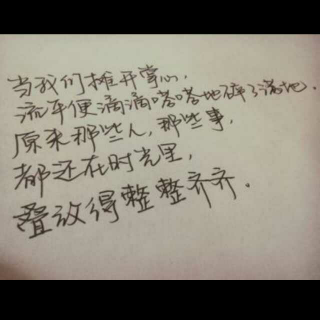 当我们摊开掌心，
流年便滴滴嗒嗒地碎了满地．
原来那些人，那些事，
都还在时光里，
叠放得整整齐齐．